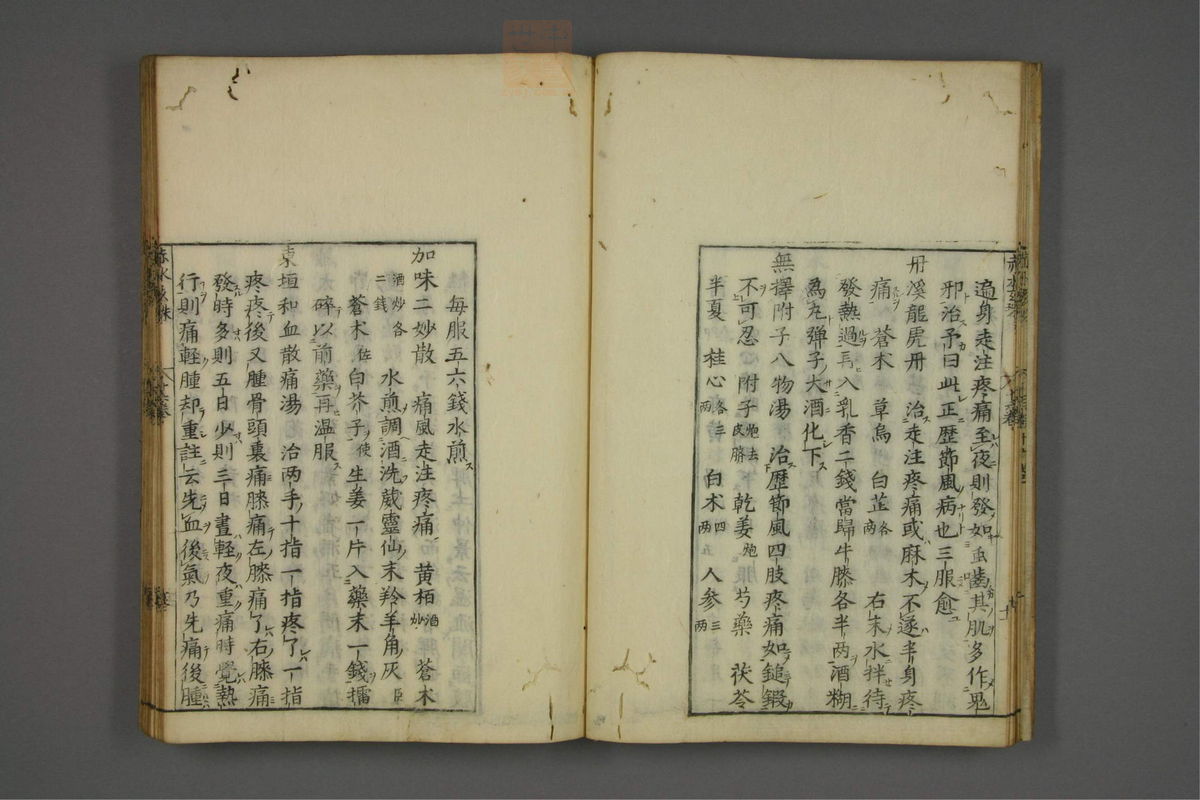 遍身走注疼痛至夜則發如虫齒其肌多作鬼
邪治予曰此正歴節風病也三服愈
丹溪龍虎丹 治走注疼痛或麻木不遂半身疼
痛 蒼木 草烏 白芷各兩 右末水拌待
發熱過再入乳香二錢當歸牛膝各半兩酒糊
為丸彈子大酒化下
無擇附子八物湯 治歴節風四肢疼痛如鎚鍛
不可忍 附子炮去皮臍 乾姜炮 芍藥 茯苓
半夏 桂心各三兩 白朮四兩 人參三兩
每服五六錢水煎
加味二妙散 痛風走注疼痛 黃栢酒炒 蒼木
酒炒各二錢 水煎調酒洗葳靈仙末羚羊角灰臣
蒼木佐白芥子使生姜一片入藥末一錢擂
碎以前藥再温服
東垣和血散痛湯 治两手十指一指疼了一指
疼疼後又腫骨頭裏痛膝痛左膝痛了右膝痛
發時多則五日少則三日晝輕夜重痛時覺熱
行則痛輕腫却重註云先血後氣乃先痛後腫